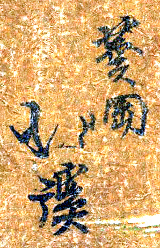 葵岡
北溪